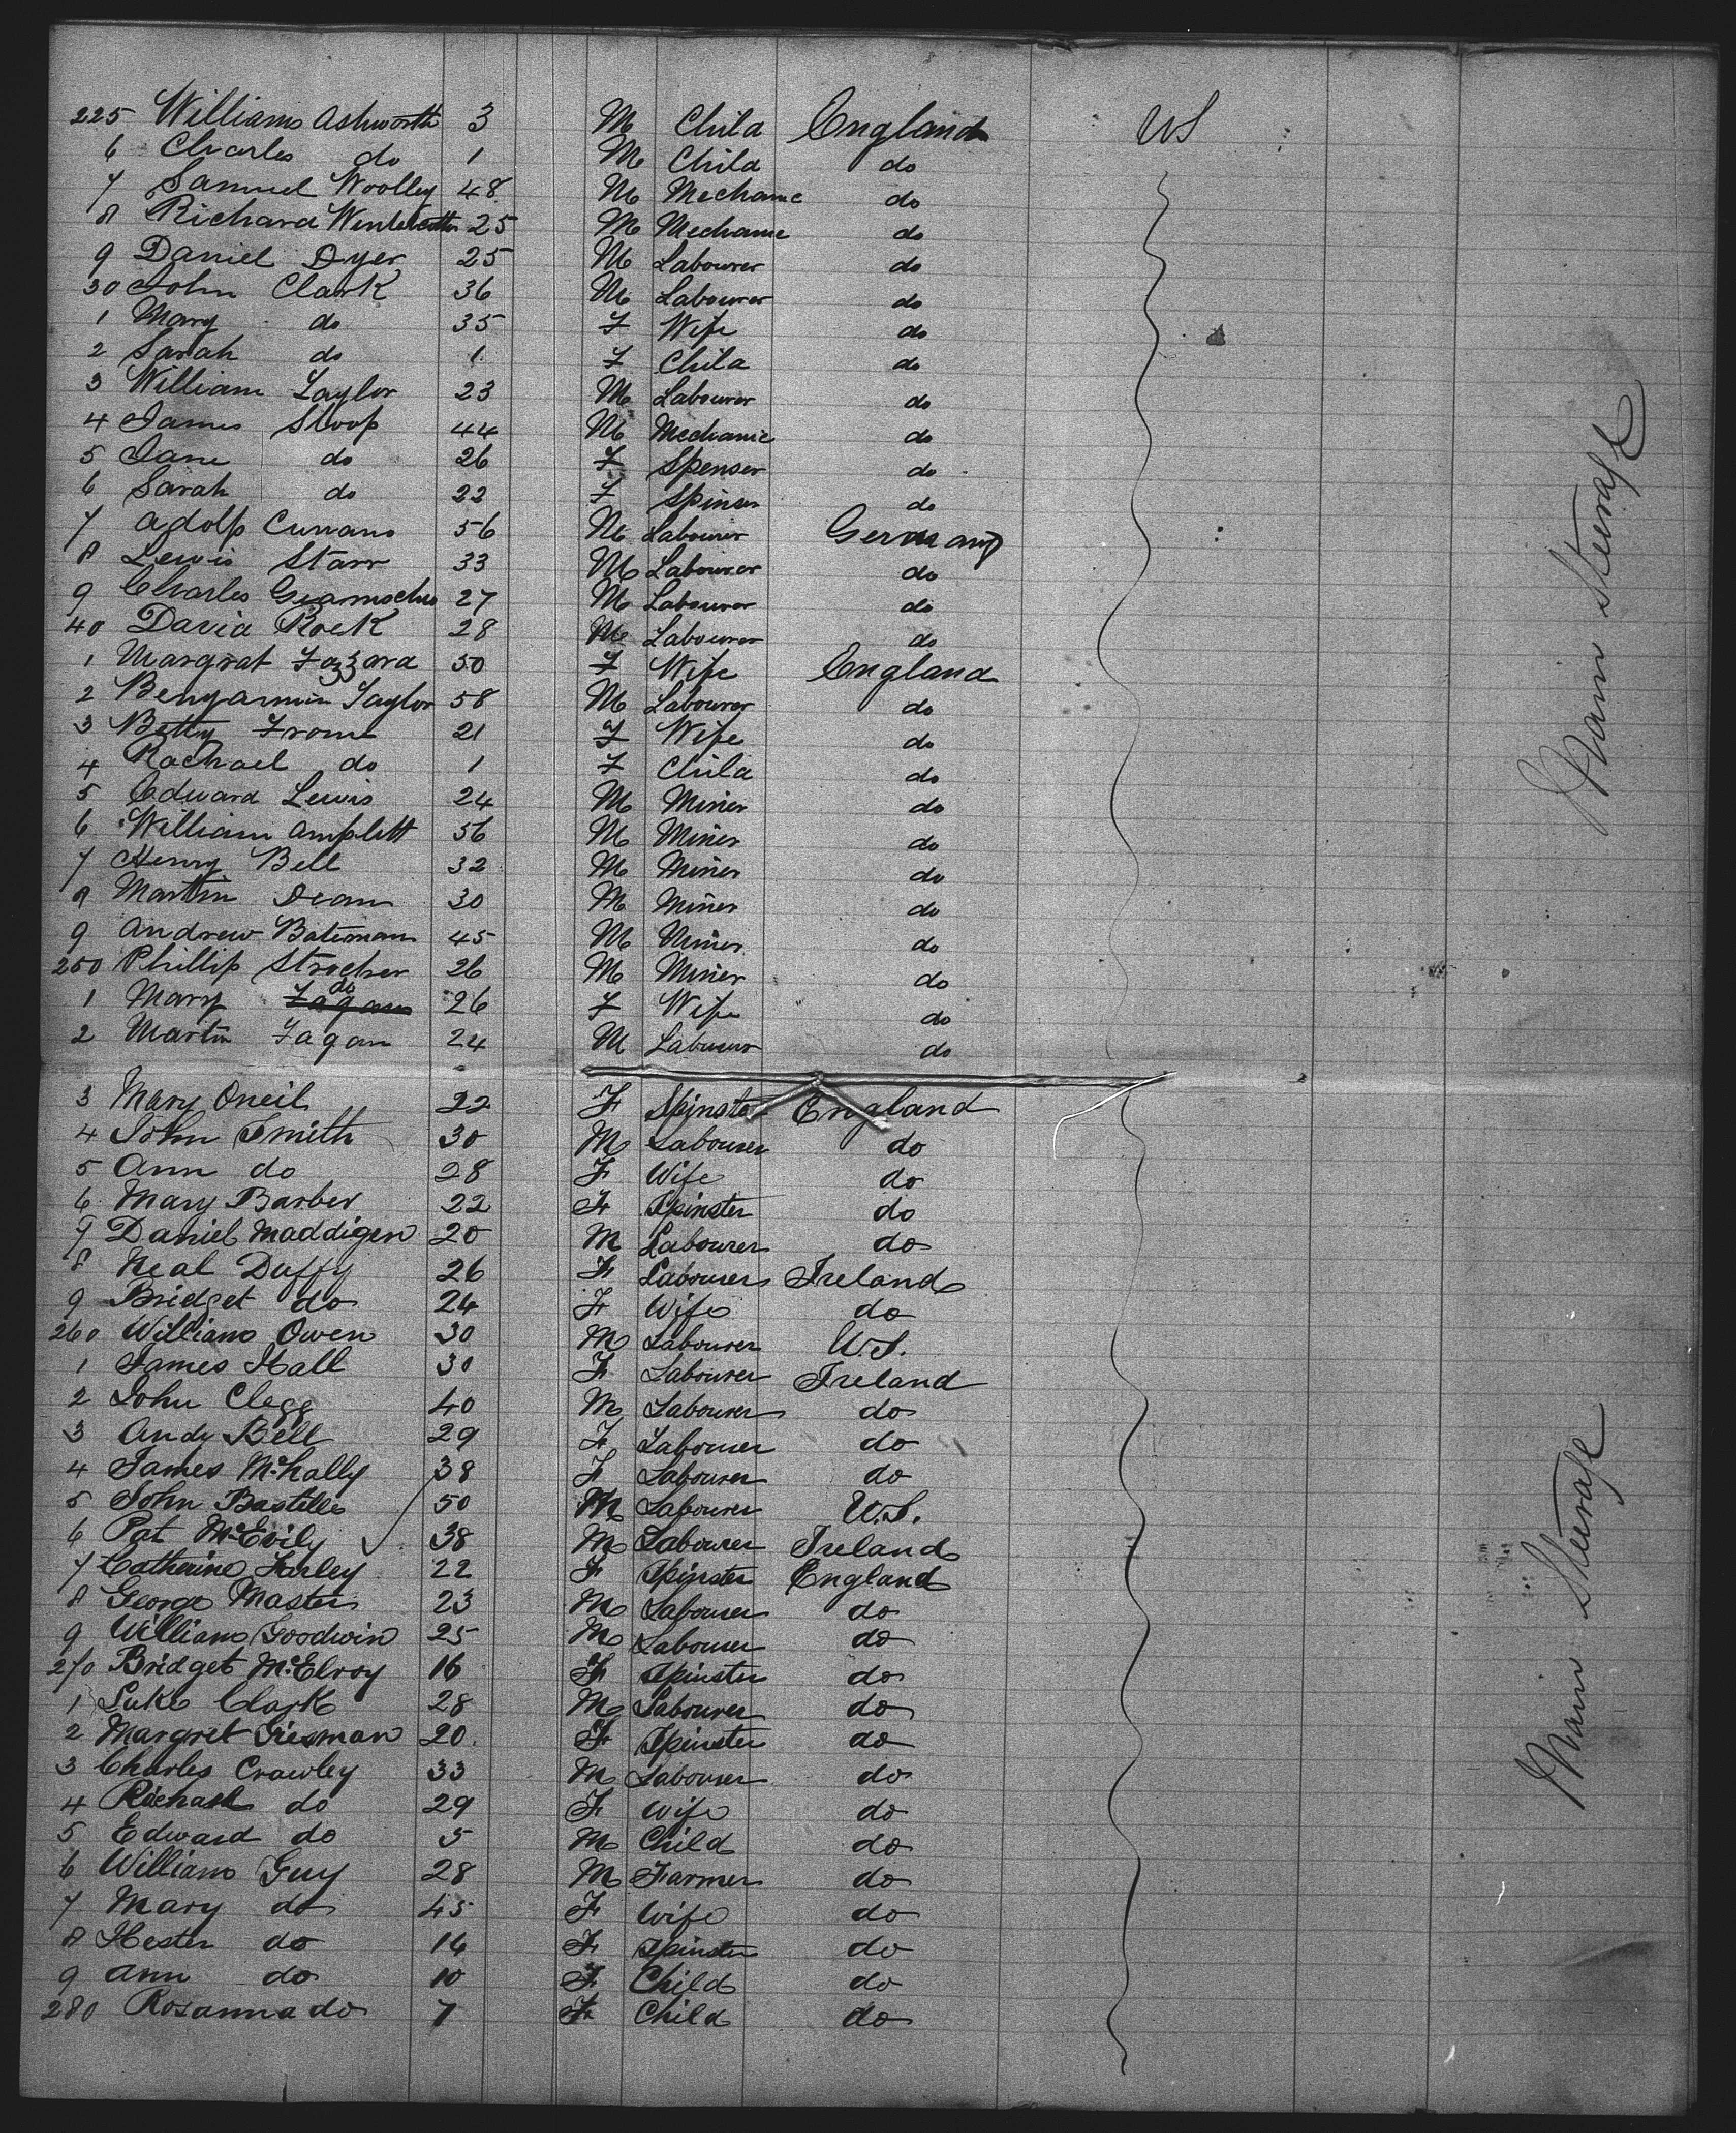 225 William Ashworth 3 M Child England US
6 Charles do 1 M Child do
7 Samuel Woolley 48 M Mechanic do
8 Richard 25 M Mechanic do
9 Daniel Dyer 25 M Labourer do
30 John Clark 36 M Labourer do
1 Mary do 35 F Wife do
2 Sarah do 1 F Child do
3 William Taylor 23 M Labourer do
4 James Stoop 44 M Mechanic do
5 Jane do 26 F Spenser do
6 Sarah do 22 F Spinser do
7 Adolp 56 M Labourer Germany
8 Lewis Starr 33 M Labourer do
9 Charles 27 M Labourer do
40 David Rock 28 M Labourer do
1 Margrat Fozzard 50 F Wife England
2 Bengamin Taylor 58 M Labourer do
3 Betty Frome 21 F Wife do
4 Rachael do 1 F Child do
5 Edward Lewis 24 M Miner do
6 William Amplett 56 M Miner do
7 Henry Bell 32 M Miner do
8 Martin Dean 30 M Miner do
9 Andrew Bateman 45 M Miner do
250 Phillip Strocher 26 M Miner do
1 Mary Fagan do 26 F Wife do
2 Martin Fagan 24 M Labourer do
3 Mary Oneil 22 F Spinster England
4 John Smith 30 M Labourer do
5 Ann do 28 F Wife do
6 Mary Barber 22 F Spinster do
7 Daniel Maddigen 20 M Labourer do
8 Neal Duffy 26 F Labourer Ireland
9 Bridget do 24 F Wife do
260 William Owen 30 M Labourer U.S.
1 James Hall 30 F Labourer Ireland
2 John Clegg 40 M Labourer do
3 Andy Bell 29 F Labourer do
4 James McNally 38 F Labourer do
5 John Bastille 50 M Labourer U.S.
6 Pat McEvily 38 M Labourer Ireland
7 Catherine Hurley 22 F Spinster England
8 George Masters 23 M Labourer do
9 William Goodwin 25 M Labourer do
270 Bridget McElroy 16 F Spinster do
1 Luke Clark 28 M Labourer do
2 Margret Griesman 20 F Spinster do
3 Charles Crawley 33 M Labourer do
4 Richash do 29 F Wife do
5 Edward do 5 M Child do
6 William Guy 28 M Farmer do
7 Mary do 45 F Wife do
8 Hester do 14 F Spinster do
9 Ann do 10 F Child do
280 Rosanna do 7 F Child do
Main Steerage
Main Steerage